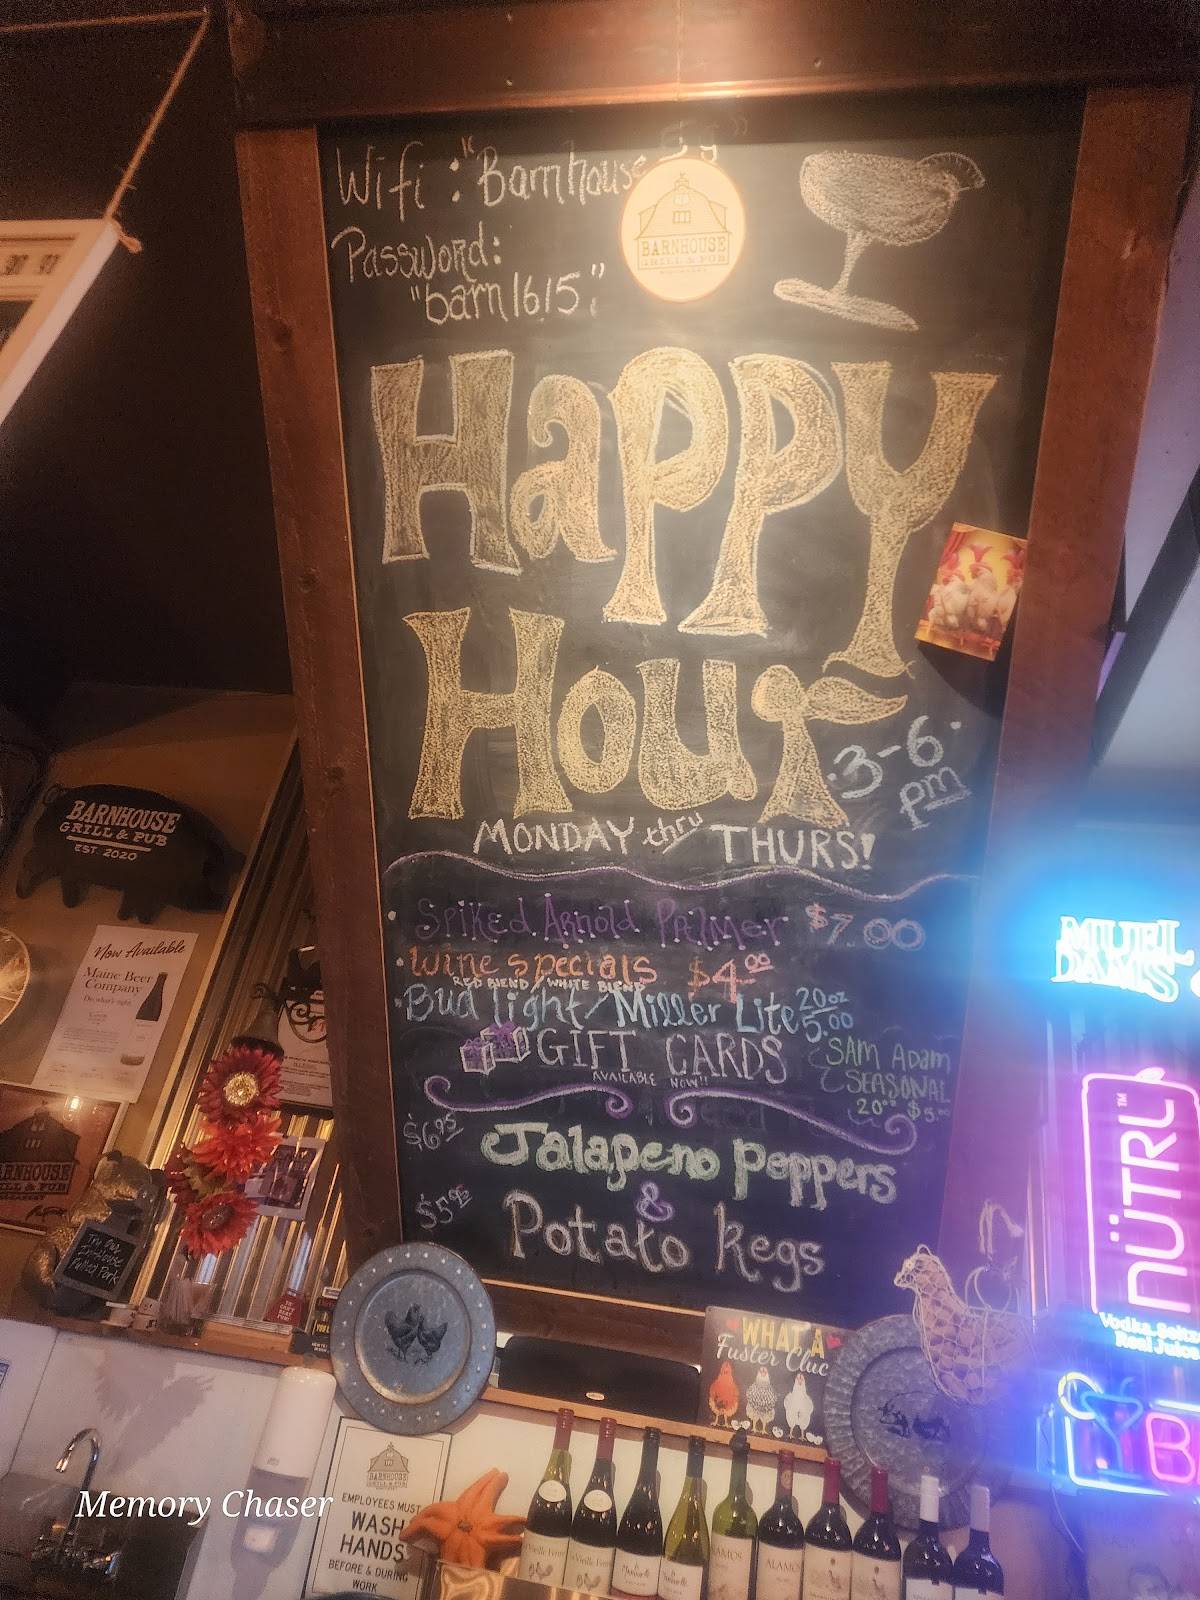 Wifi: "Barnhouse 5g"
Password:
"barn1615"
BARNHOUSE
GRILL & PUB
Happy
Hour
3-6
pm
MONDAY thru THURS!
Spiked Arnold Palmer $7.00
Wine specials $4.00
RED BLEND / WHITE BLEND
Bud light / Miller Lite 20oz 5.00
GIFT CARDS
AVAILABLE NOW!!
SAM ADAM
SEASONAL
20oz $5.00
$6.95 Jalapeno Poppers
&
$5.95 Potato Kegs
BARNHOUSE
GRILL & PUB
EST. 2020
Now Available
Maine Beer
Company
Pulled Pork
WHAT A
Fuster Cluc
BARNHOUSE
GRILL & PUB
EMPLOYEES MUST
WASH
HANDS
BEFORE & DURING
WORK
NÜTRL™
Vodka
Real Juice
Memory Chaser